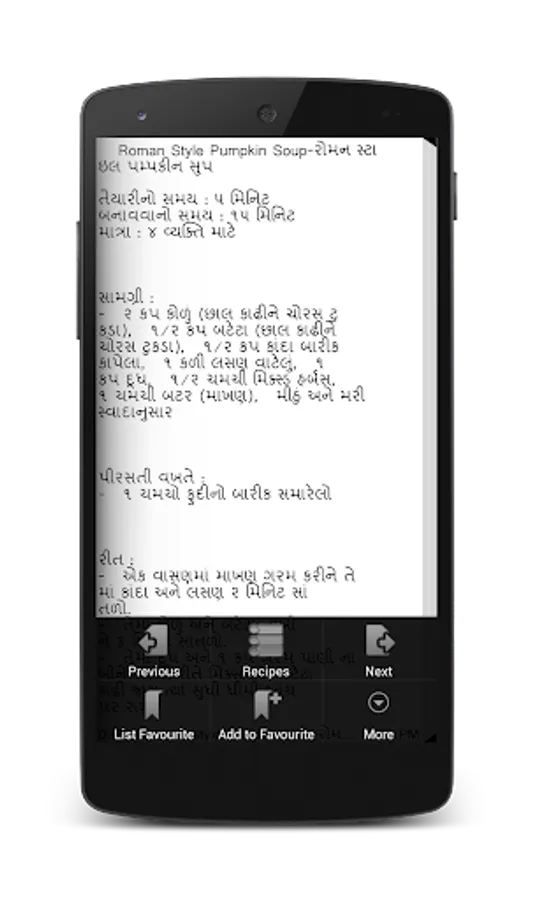 Roman Style Pumpkin Soup-રોમન સ્ટા
ઇલ પમ્પકીન સુપ
તૈયારીનો સમય : ૫ મિનિટ
બનાવવાનો સમય : ૧૫ મિનિટ
માત્રા : ૪ વ્યક્તિ માટે
સામગ્રી :
- ૨ કપ કોળું (છાલ કાઢીને ચોરસ ટુ
કડા), ૧/૨ કપ બટેટા (છાલ કાઢીને
ચોરસ ટુકડા), ૧/૨ કપ કાંદા બારીક
કાપેલા, ૧ કળી લસણ વાટેલું, ૧
કપ દૂધ, ૧/૨ ચમચી મિક્સ્ડ હર્બસ,
૧ ચમચી બટર (માખણ), મીઠું અને મરી
સ્વાદાનુસાર
પીરસતી વખતે :
- ૧ ચમચો ફુદીનો બારીક સમારેલો
રીત :
- એક વાસણમાં માખણ ગરમ કરીને તે
માં કાંદા અને લસણ ૨ મિનિટ સાં
તળો.
Previous
Recipes
Next
List Favourite
Add to Favourite
More